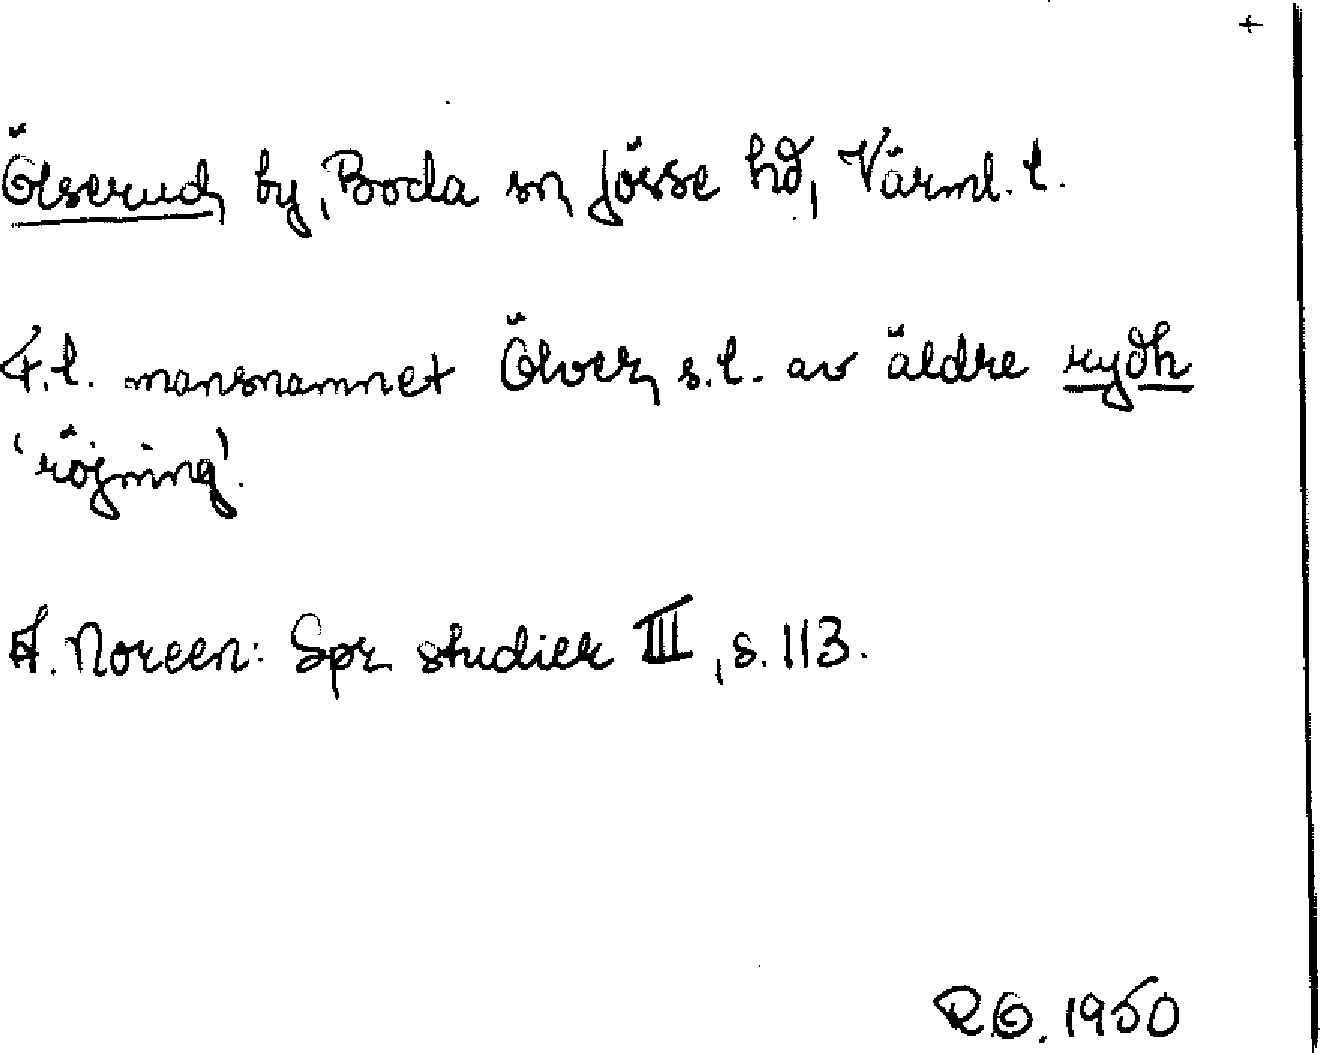 +
Ölserud, by, Boda sn, Jösse hd, Värml. l.
F.l. mansnamnet Ölver, s.l. av äldre rydh
'röjning'.
A. Noreen: Spr. studier III, s. 113.
R.O. 1950